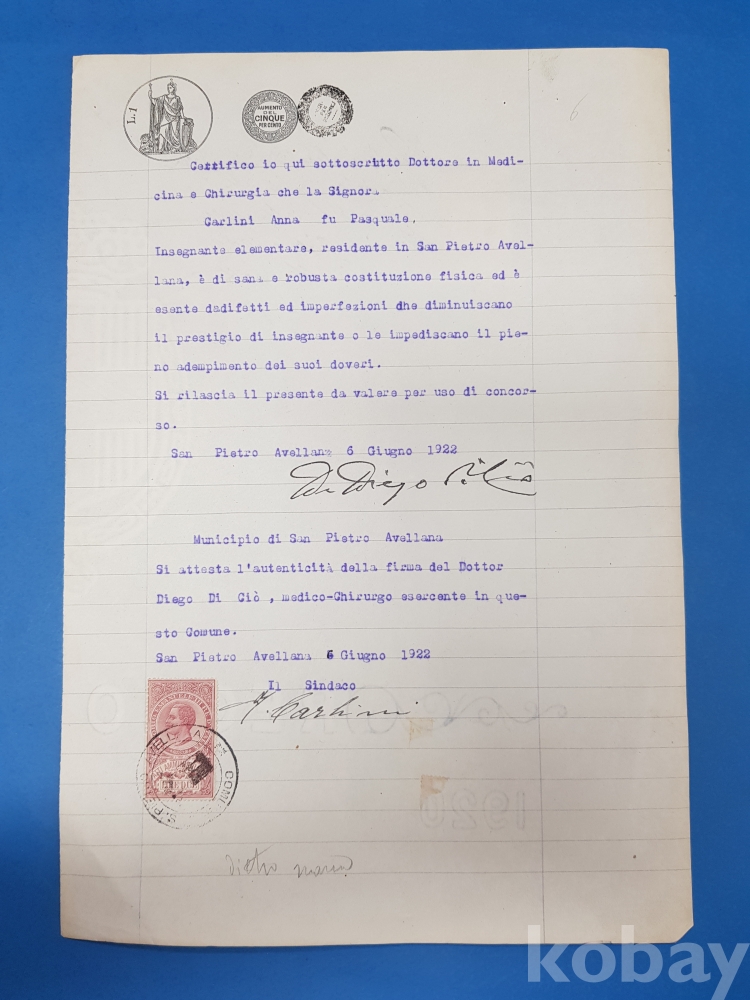 L.1
AUMENTO
DEL
CINQUE
PER CENTO
6
Certifico io qui sottoscrutto Dottore in Medi-
cina e Chirurgia che la Signora
Carlini Anna fu Pasquale.
Insegnante elementare, residente in San Pietro Avel-
lana, è di sana e robusta costituzione fisica ed è
esente dadifetti ed imperfezioni dhe diminuiscano
il prestigio di insegnante o le impediscano il pie-
no adempimento dei suoi doveri.
Si rilascia il presente da valere per uso di concor-
so.
San Pietro Avellana 6 Giugno 1922
Diego
Municipio di San Pietro Avellana
Si attesta l'autenticità della firma del Dottor
Diego Di Ciò , medico-Chirurgo esercente in que-
sto Comune.
San Pietro Avellana 6 Giugno 1922
Il Sindaco
Carlini
1920
kobay